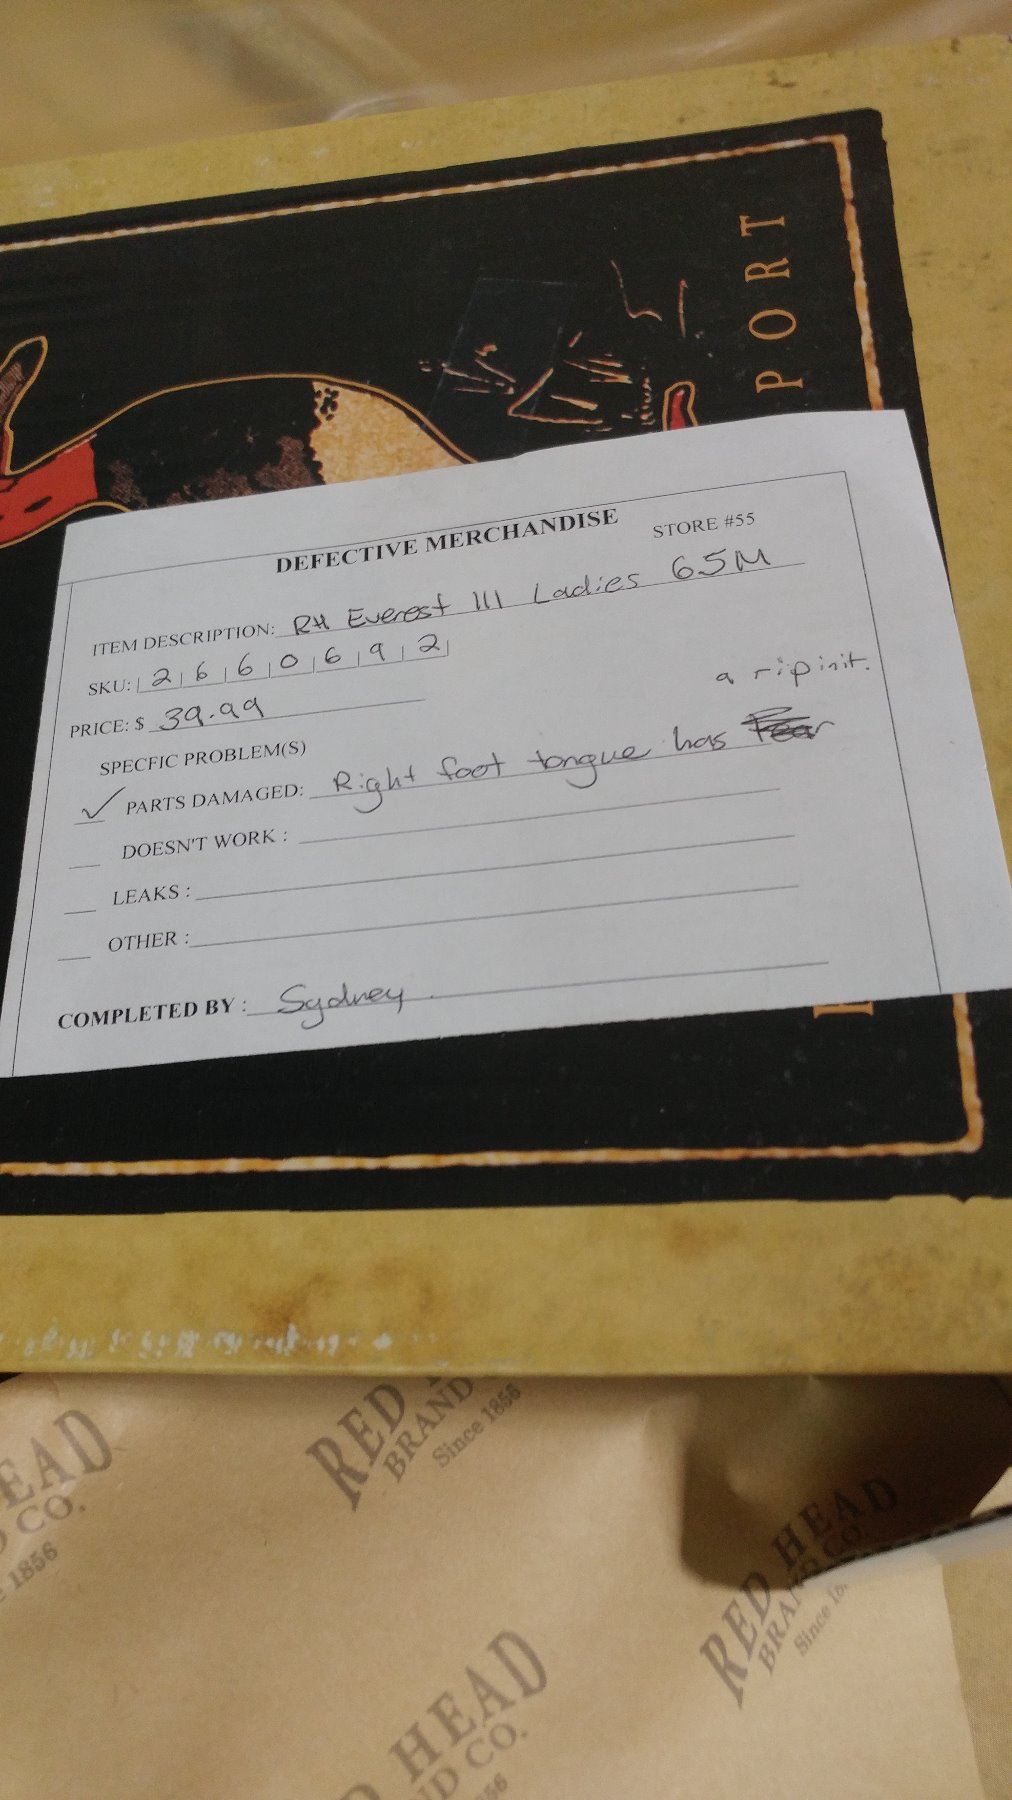 PORT
DEFECTIVE MERCHANDISE STORE #55
ITEM DESCRIPTION: RH Everest III Ladies 6.5M
SKU: 2660692
PRICE: $ 39.99
SPECFIC PROBLEM(S)
a rip in it.
✓ PARTS DAMAGED: Right foot tongue has
DOESN'T WORK :
LEAKS :
OTHER :
COMPLETED BY : Sydney
RED
BRAND
Since 1856
EAD
CO.
1856
RED HEAD
BRAND CO.
Since
HEAD
ND CO.
56